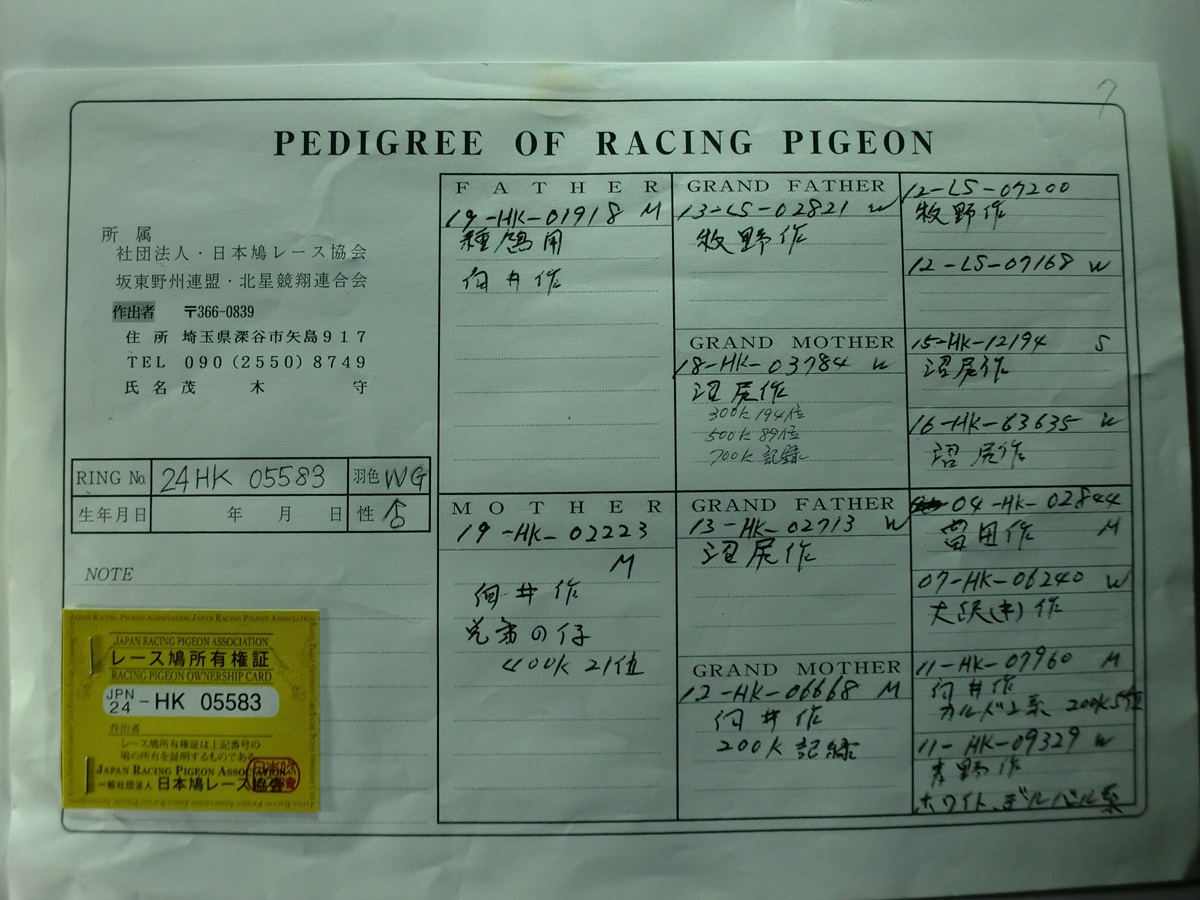 7
PEDIGREE OF RACING PIGEON
所属
社団法人・日本鳩レース協会
坂東野州連盟・北星競翔連合会
作出者 〒366-0839
住所 埼玉県深谷市矢島917
TEL 090(2550)8749
氏名 茂木 守
RING No. 24HK 05583 羽色 WG
生年月日 年 月 日 性 ♂
NOTE
JAPAN RACING PIGEON ASSOCIATION
レース鳩所有権証
RACING PIGEON OWNERSHIP CARD
JPN 24 - HK 05583
作出者
レース鳩所有権証は上記番号の
鳩の所有を証明するものである
JAPAN RACING PIGEON ASSOCIATION
一般社団法人 日本鳩レース協会
FATHER
19-HK-01918 M
種鳩用
向井作
MOTHER
19-HK-02223
M
向井作
兄弟の仔
400K 21位
GRAND FATHER
13-LS-02821 W
牧野作
GRAND MOTHER
18-HK-03784 W
沼尻作
300K 194位
500K 89位
700K 記録
GRAND FATHER
13-HK-02713 W
沼尻作
GRAND MOTHER
12-HK-06668 M
向井作
200K 記録
12-LS-07200
牧野作
12-LS-07168 W
15-HK-12194 S
沼尻作
16-HK-63635 W
沼尻作
04-HK-02844
M
07-HK-06240 W
大沢(キ)作
11-HK-07960 M
向井作
200K 5位
11-HK-09329 W
青野作